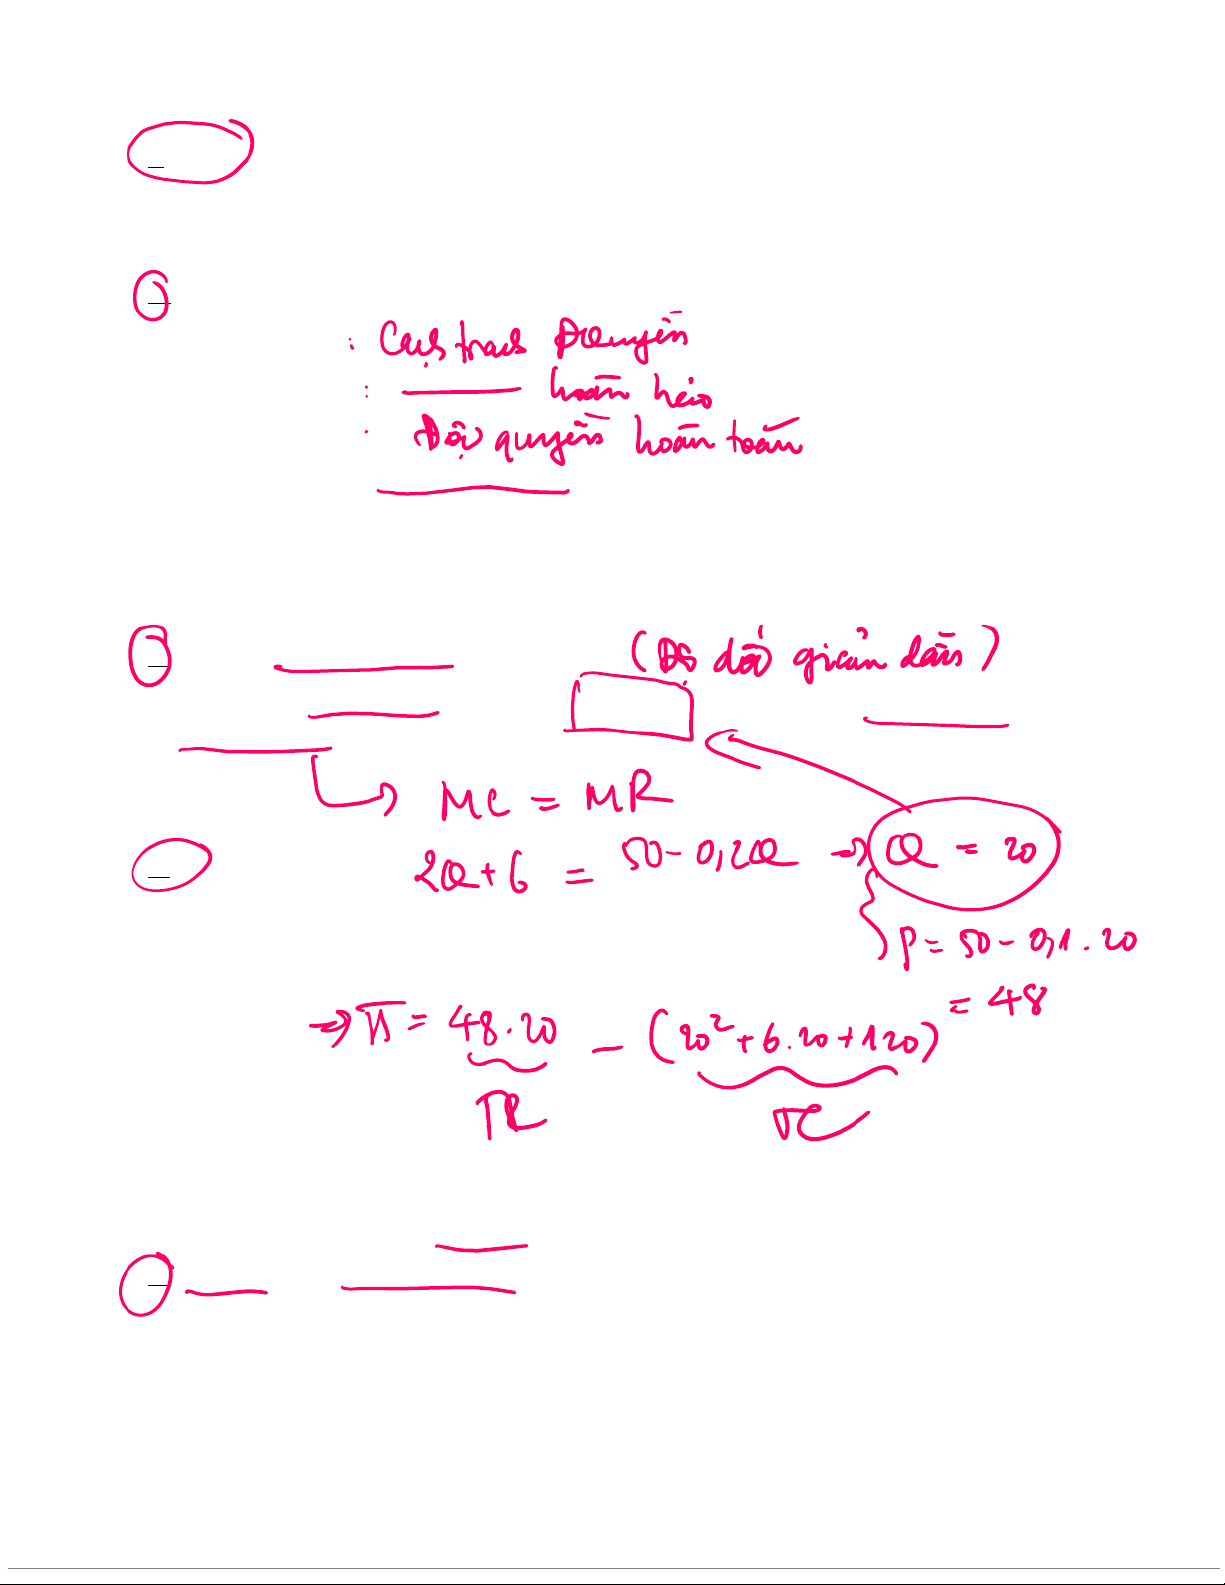 : Cạnh tranh Đquyền
: hoàn hảo
. Độc quyền hoàn toàn
(Đs dốc giảm dần)
MC = MR
2Q + 6 = 50 - 0,2Q → Q = 20
P = 50 - 0,1 . 20
= 48
⇒ π = 48.20 - (20² + 6.20 + 120)
TR TC